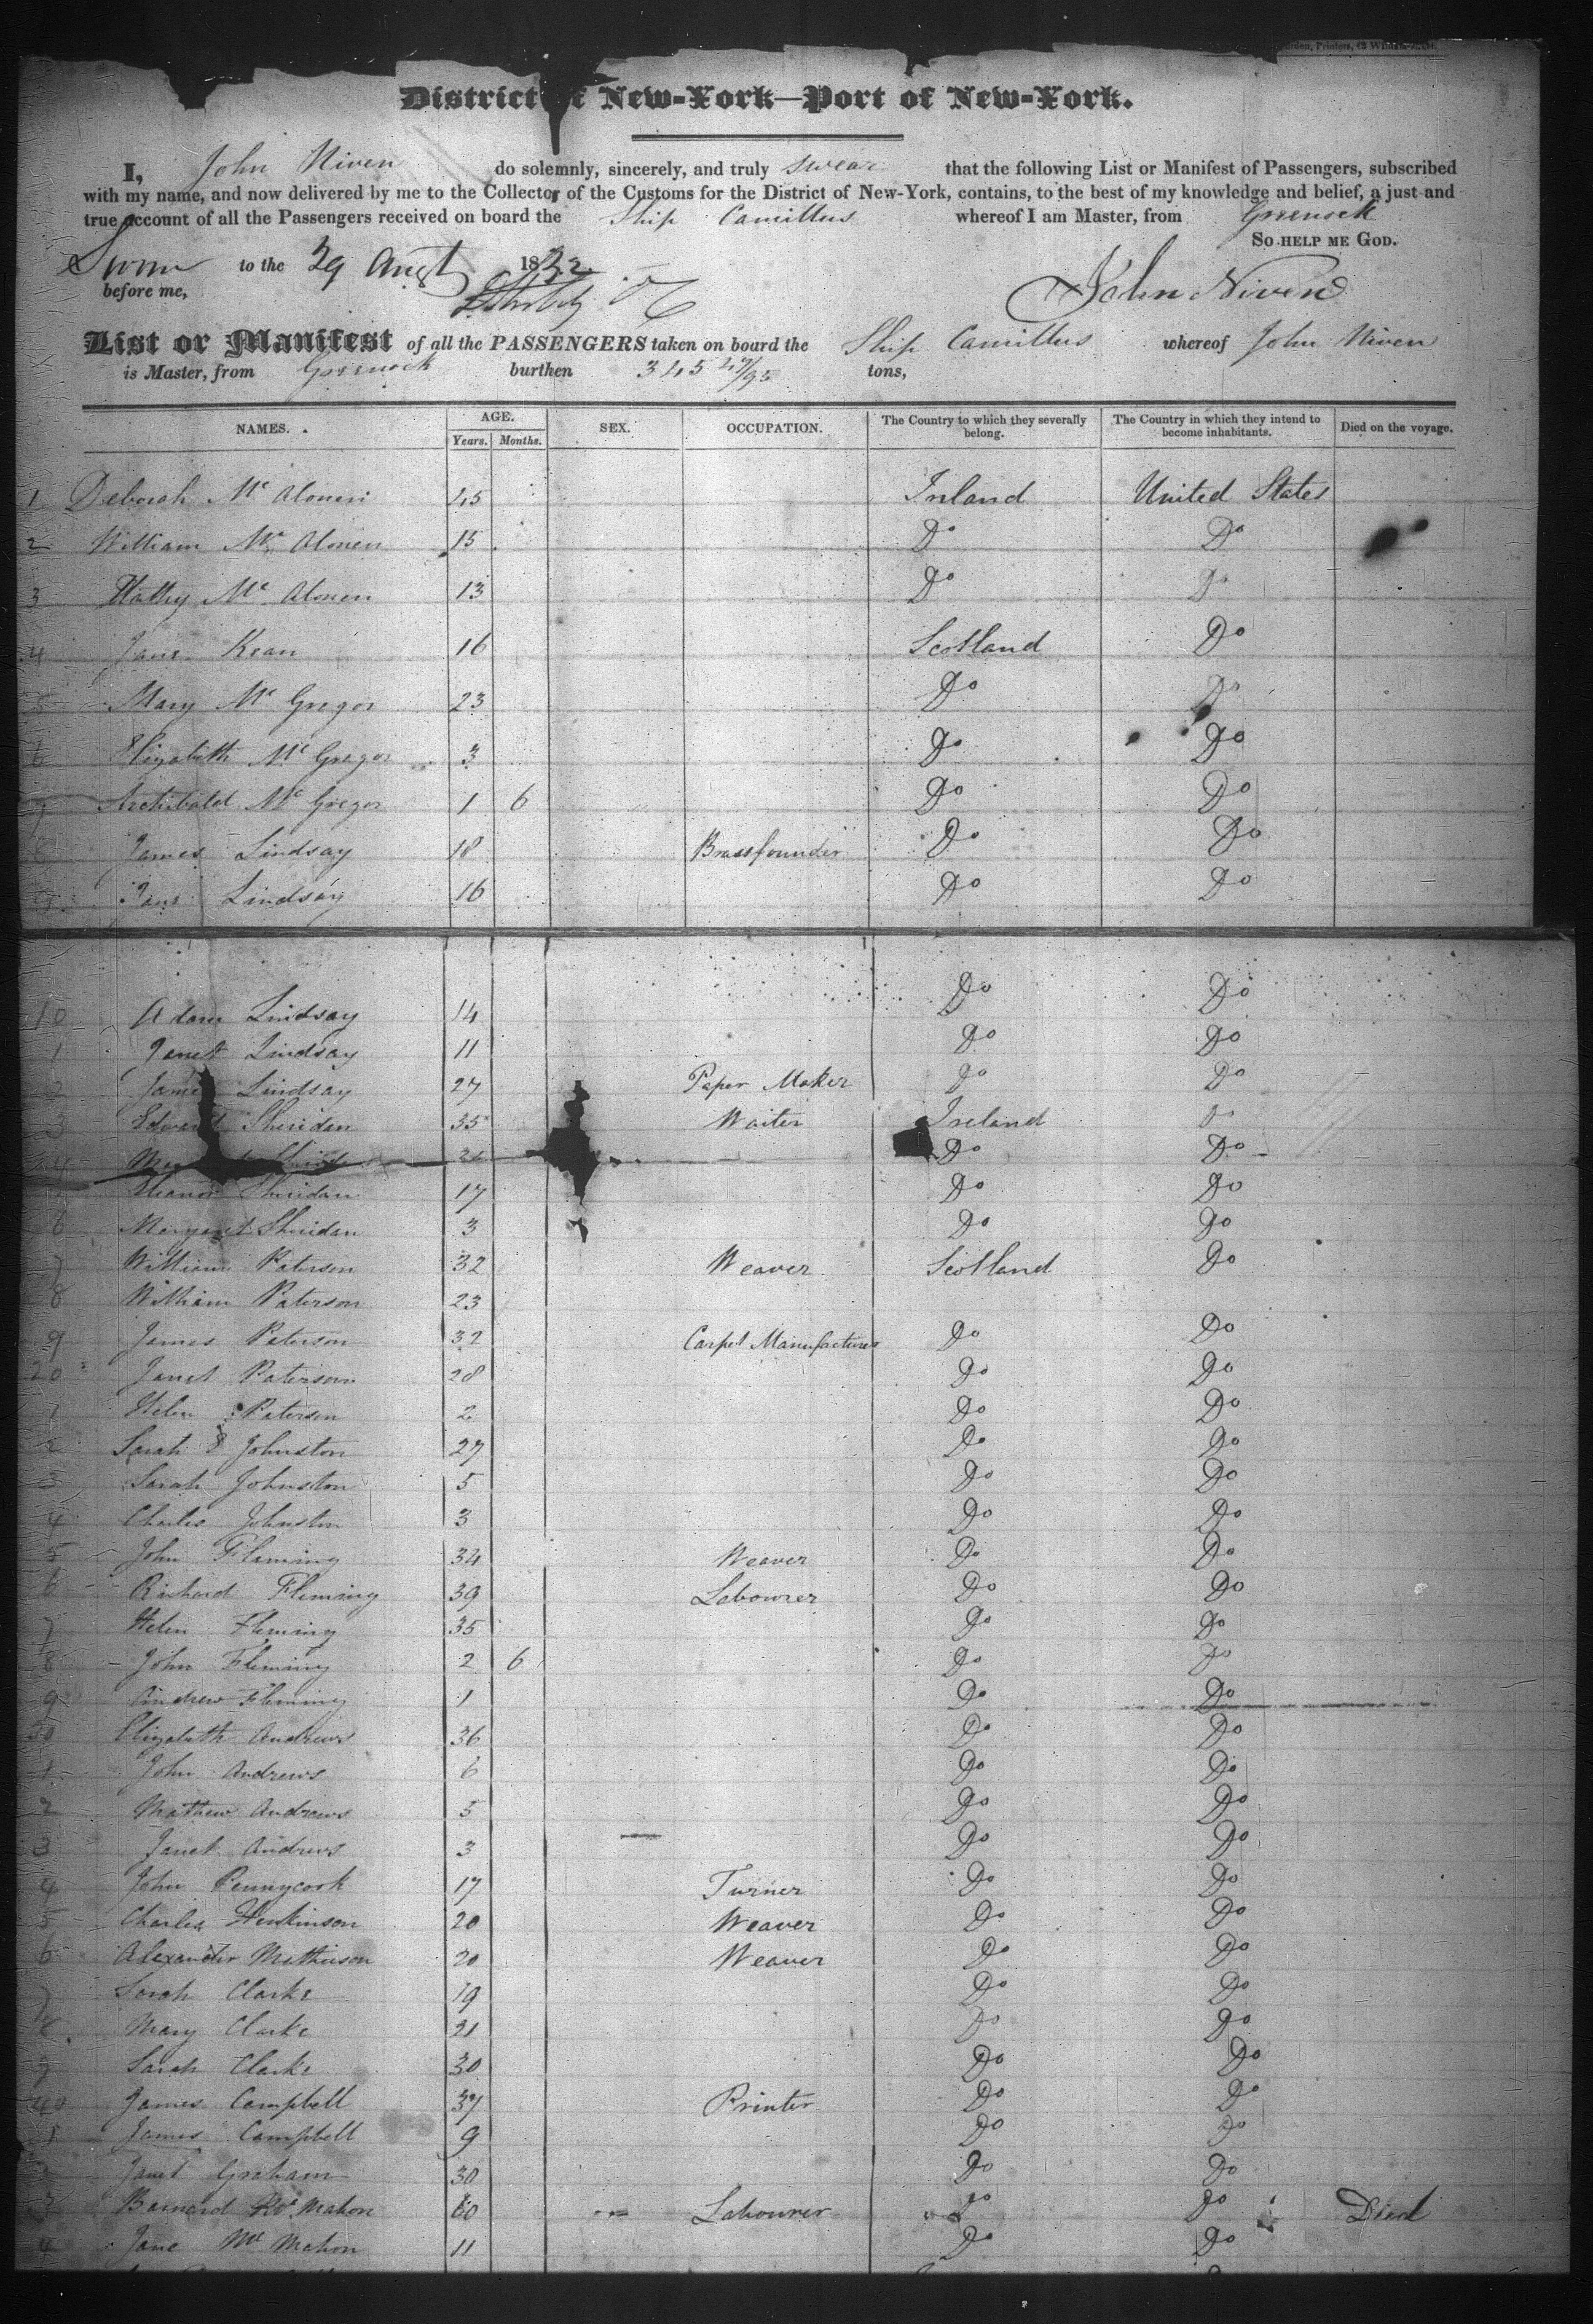 District of New-York—Port of New-York.
I, John Niven do solemnly, sincerely, and truly swear that the following List or Manifest of Passengers, subscribed
with my name, and now delivered by me to the Collector of the Customs for the District of New-York, contains, to the best of my knowledge and belief, a just and
true account of all the Passengers received on board the Ship Camillus whereof I am Master, from Greenock
SO HELP ME GOD.
Sworn to the 29 Augt 1832
before me,
John Niven
List or Manifest of all the PASSENGERS taken on board the Ship Camillus whereof John Niven
is Master, from Greenock burthen 345 47/95 tons,
NAMES. AGE. SEX. OCCUPATION. The Country to which they severally belong. The Country in which they intend to become inhabitants. Died on the voyage.
Years. Months.
1 Deborah Mc Alonen 45 Inland United States
2 William Mc Alonen 15 Do Do
3 Mc Alonen 13 Do Do
4 Jane Kean 16 Scotland Do
5 Mary Mc Gregor 23 Do Do
6 Elizabeth Mc Gregor 3 Do Do
7 Archibald Mc Gregor 1 6 Do Do
8 James Lindsay 18 Brassfounder Do Do
9 Jane Lindsay 16 Do Do
10 Adam Lindsay 14 Do Do
1 Janet Lindsay 11 Do Do
2 James Lindsay 27 Paper Maker Do Do
3 Edward Sheridan 35 Waiter Ireland Do
4 Do Do
Eleanor Sheridan 17 Do Do
6 Margaret Sheridan 3 Do Do
7 William Paterson 32 Weaver Scotland Do
8 William Paterson 23
9 James Paterson 32 Carpet Manufacturer Do Do
20 Janet Paterson 28 Do Do
1 Helen Paterson 2 Do Do
2 Sarah Johnston 27 Do Do
3 Sarah Johnston 5 Do Do
4 Charles Johnston 3 Do Do
5 John Fleming 34 Weaver Do Do
6 Richard Fleming 39 Labourer Do Do
7 Helen Fleming 35 Do Do
8 John Fleming 2 6 Do Do
9 Andrew Fleming 1 Do Do
30 Elizabeth Andrews 36 Do Do
1 John Andrews 6 Do Do
2 Mathew Andrews 5 Do Do
3 Janet Andrews 3 Do Do
4 John Pennycook 17 Turner Do Do
5 Charles Henkinson 20 Weaver Do Do
6 Alexander Mathieson 20 Weaver Do Do
7 Sarah Clarke 19 Do Do
8 Mary Clarke 21 Do Do
9 Sarah Clarke 30 Do Do
40 James Campbell 37 Printer Do Do
1 James Campbell 9 Do Do
2 Janet Graham 30 Do Do
3 Barnard Mc Mahon 60 Labourer Do Do Died
4 Jane Mc Mahon 11 Do Do